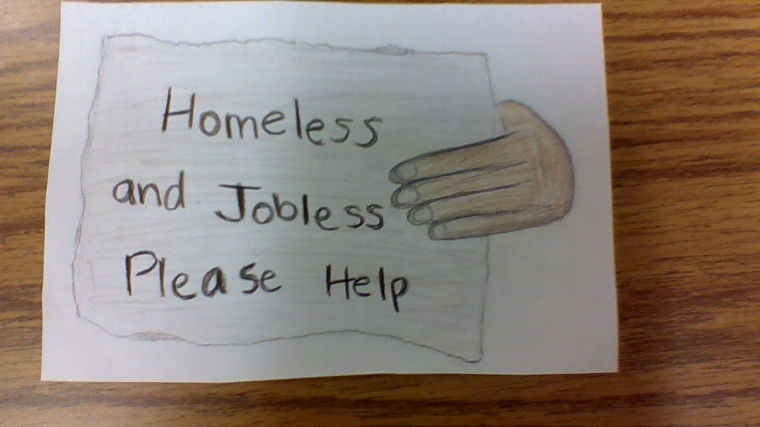 Homeless
and Jobless
Please Help